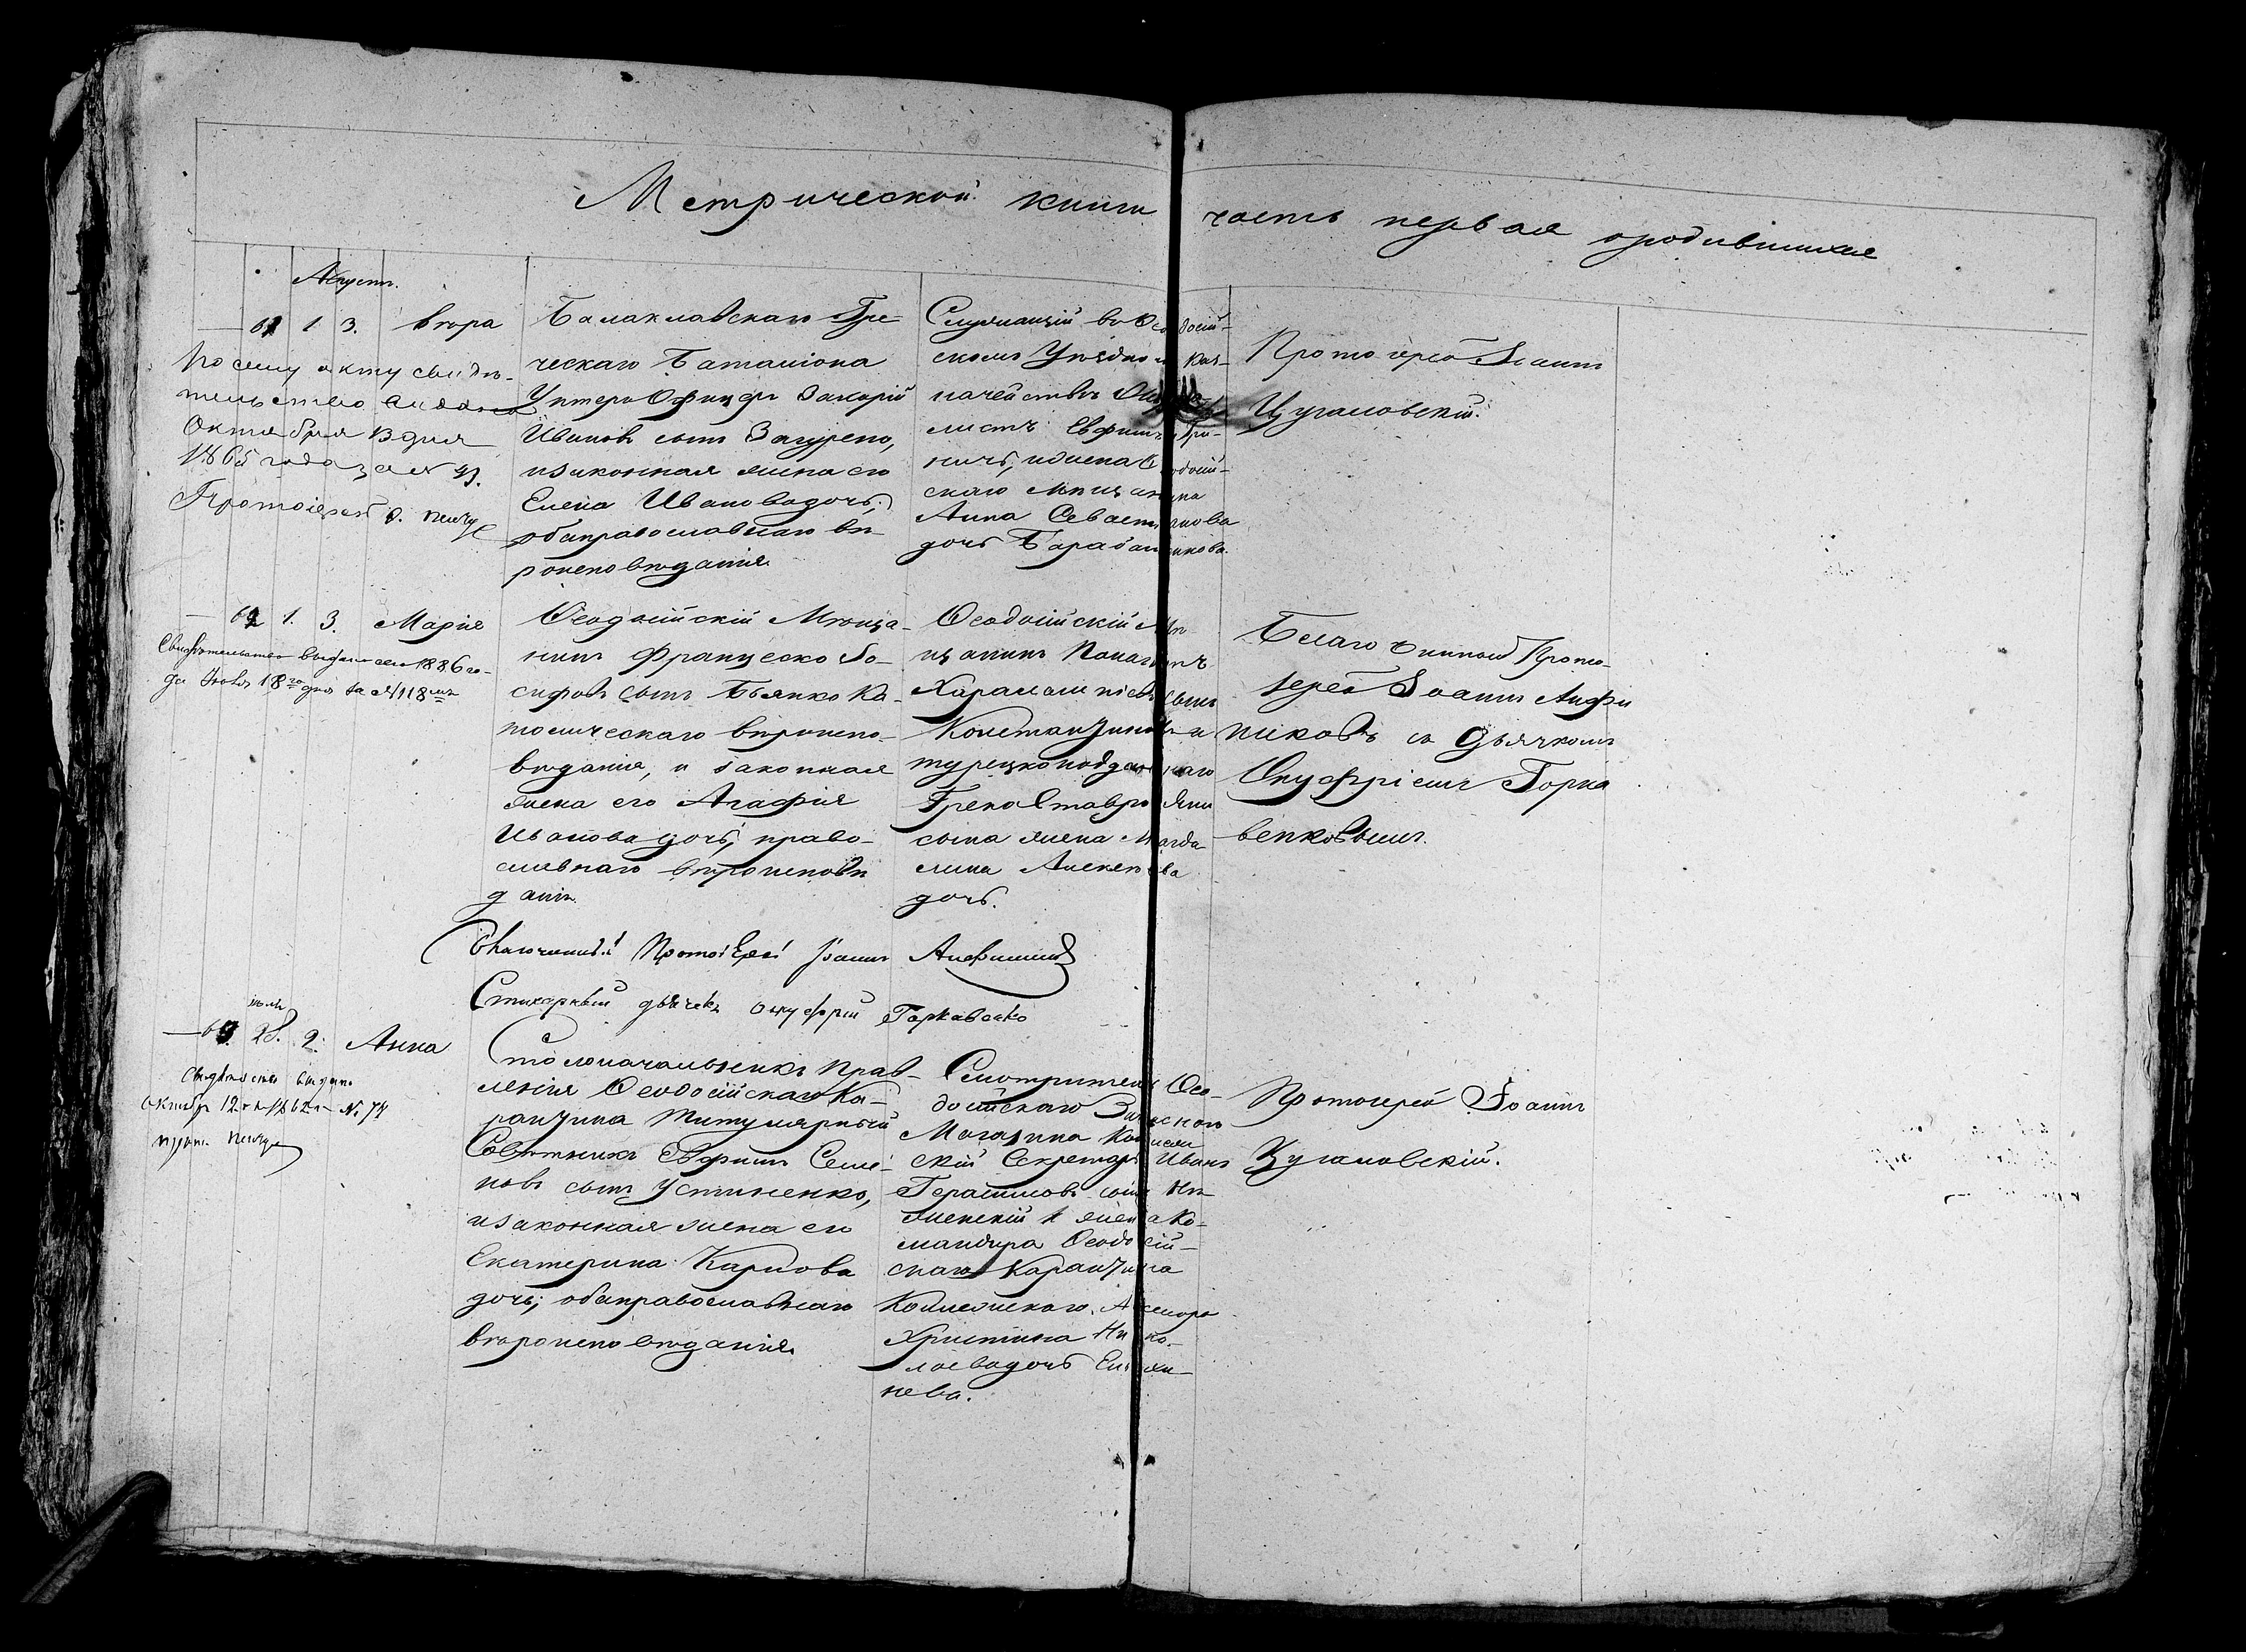 Метрической книги часть первая о родившихся
Августъ.
61 1 3. Вѣра
По сему акту свидѣ-
тельство выдано
Октября 13 дня
1865 года за № 93.
Протоіерей
Балаклавскаго Гре-
ческаго Баталіона
Унтеръ Офицеръ Захарій
Ивановъ сынъ Загурено,
и законная жена его
Елена Иванова дочь;
оба православнаго вѣ-
роисповѣданія.
Служащій въ Ѳеодосій-
скомъ Уѣздномъ Каз-
начействѣ
листъ Евфимъ
ничъ, и жена Ѳеодосій-
скаго Мѣщанина
Анна Севастьянова
дочь Барабанщикова.
Протоіерей Іоаннъ
Цугановскій.
62 1. 3. Марія
Свидѣтельство выдано сего 1886 го-
да Іюля 18го дня за № 118мъ
Ѳеодосійскій Мѣща-
нинъ Франческо Іо-
сифовъ сынъ Бьянко Ка-
толическаго вѣроиспо-
вѣданія, и законная
жена его Агафія
Иванова дочь, право-
славнаго вѣроисповѣ
данія.
Ѳеодосійскій Мѣ-
щанинъ Панагіотъ
Харалампіевъ сынъ
Константиновъ и
турецкоподданнаго
Грека Ставро Яни
сына жена Магда-
лина Алексѣева
дочь.
Благочинный Прото-
іерей Іоаннъ Анфи
никовъ съ Дьячкомъ
Онуфріемъ Горка
венковымъ.
Благочинный Протоіерей Іоаннъ
Стихарный дьячекъ Онуфрій Горкавенко
іюля
63. 28. 2. Анна
Свидѣтельство выдано
Октября 12 1862 № 74
Столоначальникъ Прав-
ленія Ѳеодосійскаго Ка-
рантина Титулярный
Совѣтникъ Евфимъ Семе-
новъ сынъ Устименко,
и законная жена его
Екатерина Карпова
дочь; оба православнаго
вѣроисповѣданія.
Смотритель Ѳео-
досійскаго Запаснаго
Магазина Коллеж
скій Секретарь Иванъ
Герасимовъ сынъ Нѣ-
женскій и жена Ко-
мандира Ѳеодосій-
скаго Карантина
Коллежскаго Асесора
Христина Нико-
лаева дочь
нева.
Протоіерей Іоаннъ
Цугановскій.